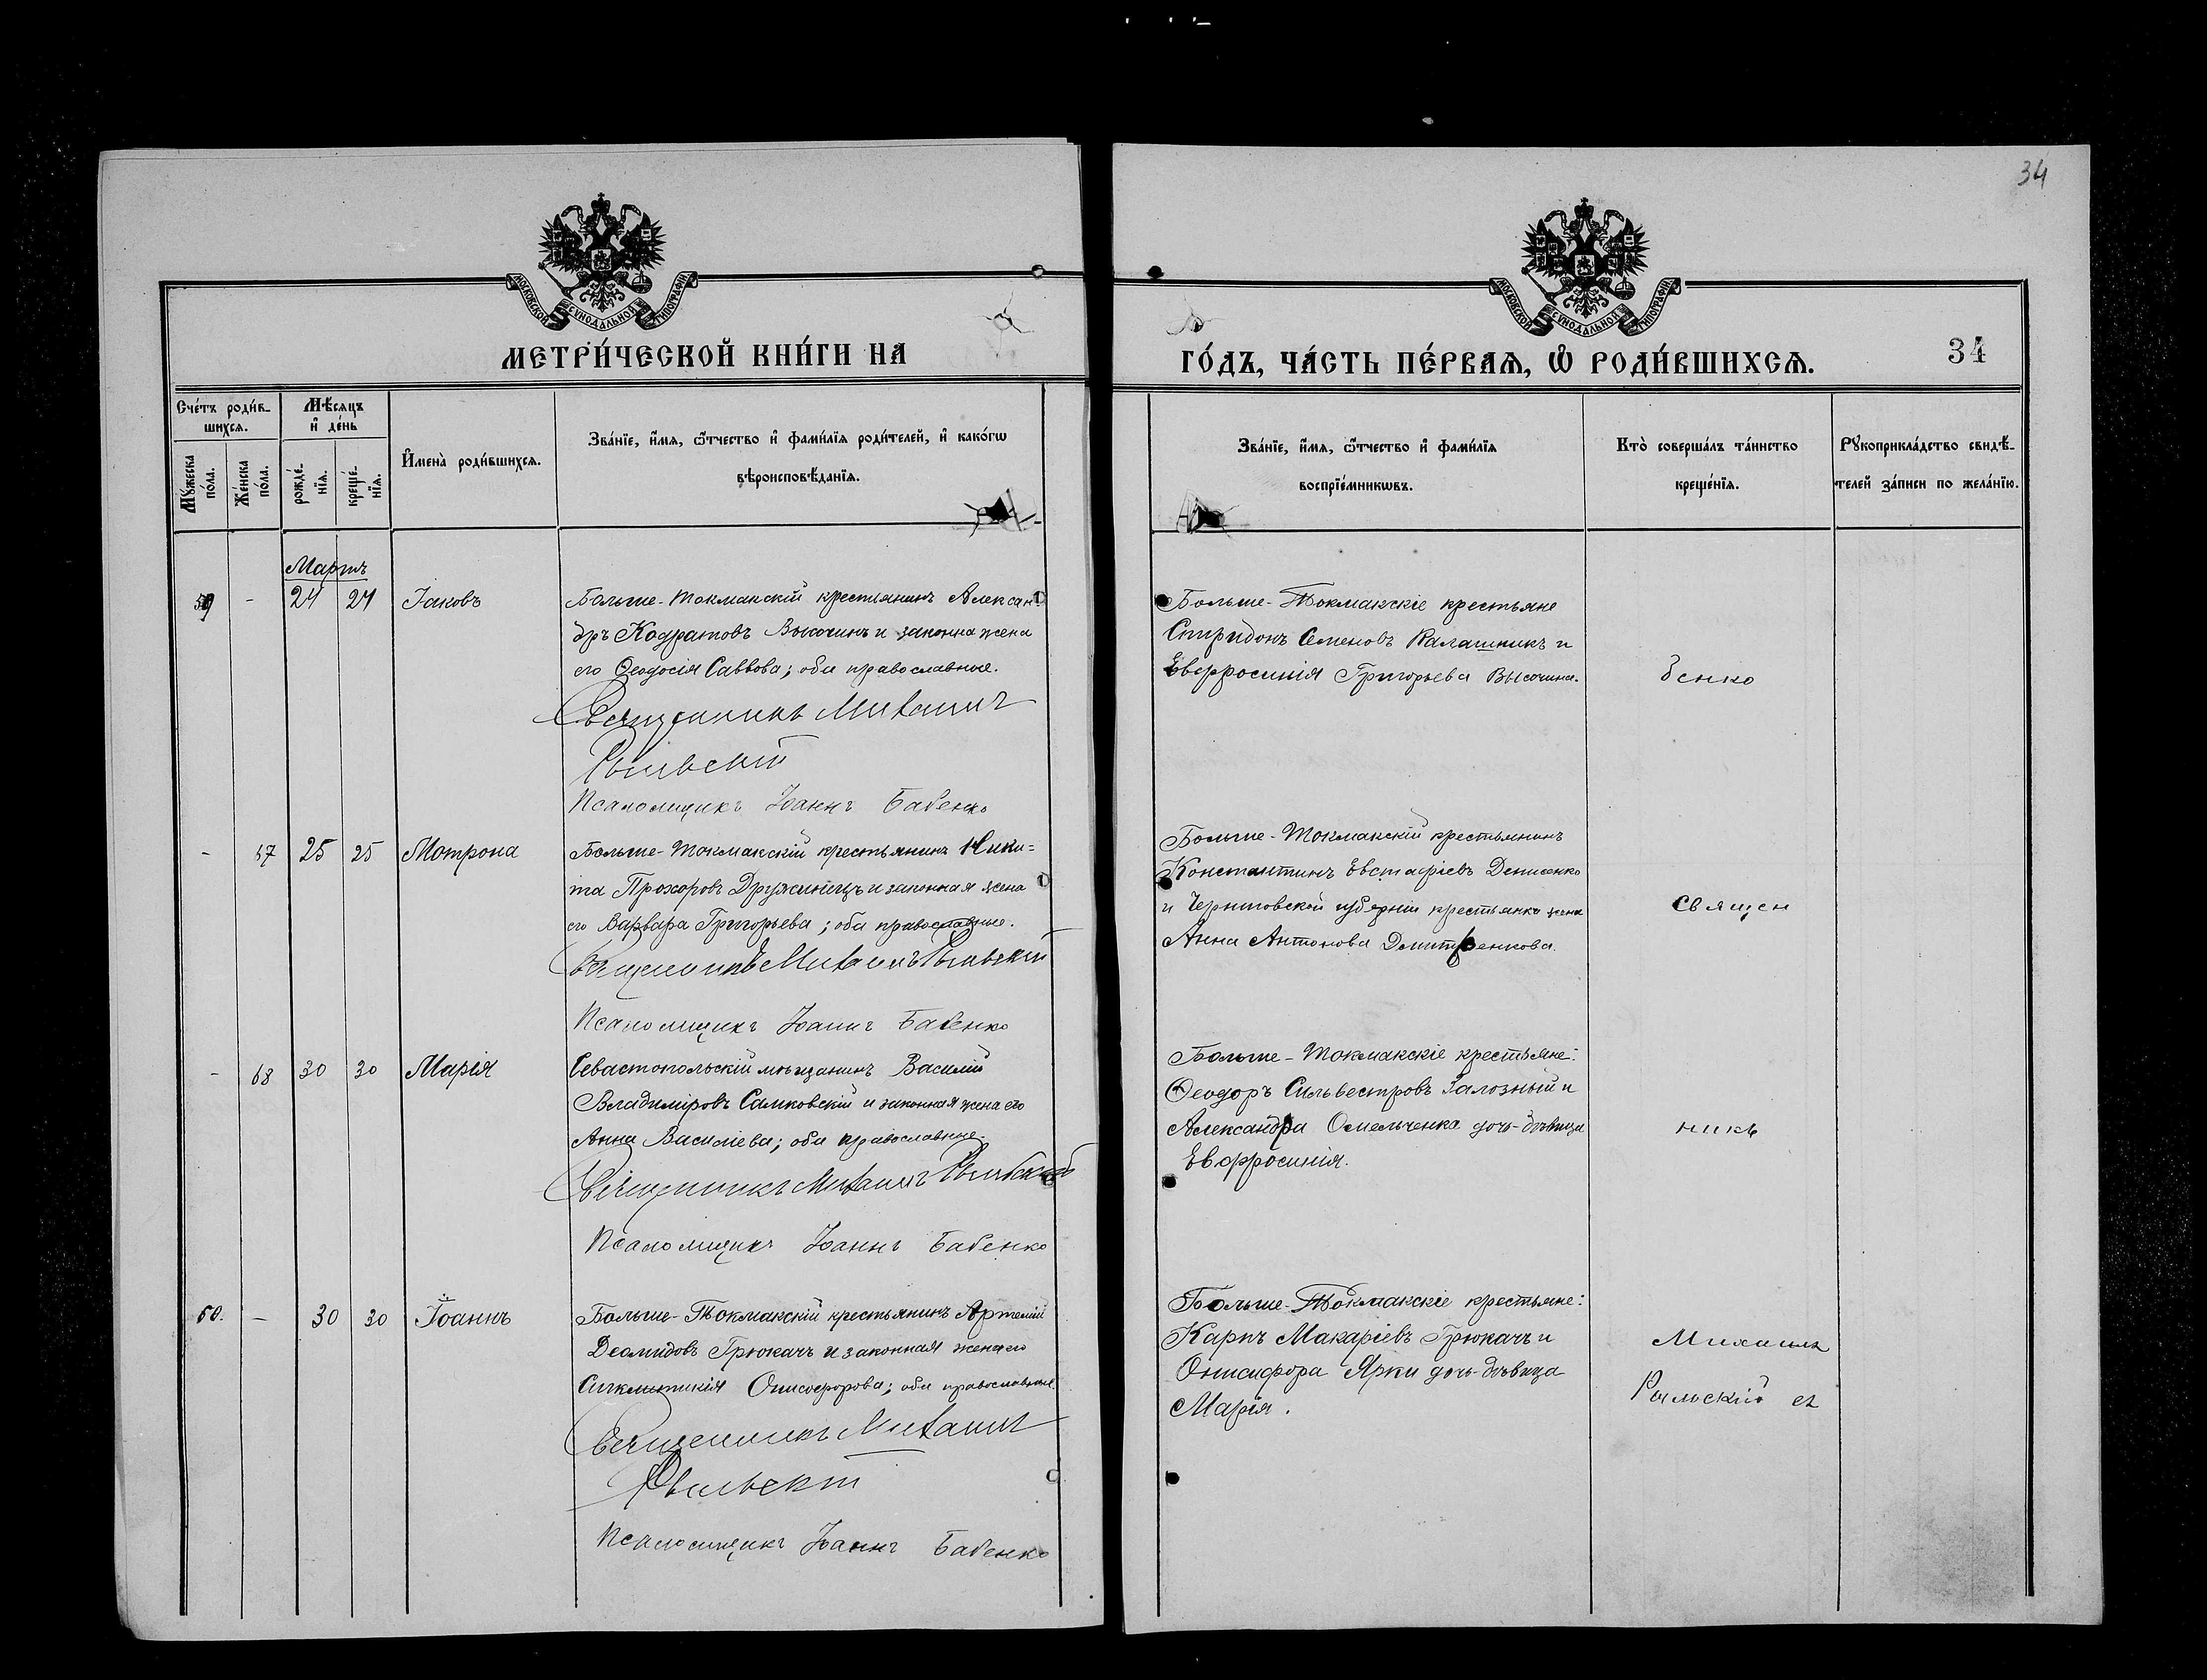 34
МОСКОВСКОЙ СѴНОДАЛЬНОЙ ТИПОГРАФІИ
МОСКОВСКОЙ СѴНОДАЛЬНОЙ ТИПОГРАФІИ
МЕТРИ́ЧЕСКОЙ КНИ́ГИ НА
ГО́ДЪ, ЧА́СТЬ ПЕ́РВАѦ, Ѽ РОДИ́ВШИХСѦ.
34
Сче́тъ роди́в-
шихсѧ.
Мѣ́сѧцъ
и҆ де́нь
И҆мена̀ роди́вшихсѧ.
Зва́нїе, и҆́мѧ, ѻ҆́тчество и҆ фами́лїѧ роди́телей, и҆ како́гѡ
вѣроисповѣ́данїѧ.
Мꙋ́жеска
по́ла.
Же́нска
по́ла.
рожде́-
нїѧ.
креще́-
нїѧ.
Зва́нїе, и҆́мѧ, ѻ҆́тчество и҆ фами́лїѧ
воспрїе́мникѡвъ.
Кто̀ соверша́лъ та́инство
креще́нїѧ.
Рꙋкоприкла́дство свидѣ́-
телей за́писи по жела́нїю.
Мартъ
59 - 24 24 Іаковъ
Больше-Токмакскій крестьянинъ Алексан-
дръ Кодратовъ Высочинъ и законна жена
его Ѳеодосія Саввова; оба православные.
Священникъ Михаилъ
Рыльскій
Псаломщикъ Іоаннъ Бабенко
Больше-Токмакскіе крестьяне
Спиридонъ Семеновъ Калашникъ и
Евфросинія Григорьева Высочина.
бенко
- 67 25 25 Мотрона
Больше-Токмакскій крестьянинъ Ники-
та Прохоровъ Дружинецъ и законная жена
его Варвара Григорьева; оба православные.
Священникъ Михаилъ Рыльскій
Псаломщикъ Іоаннъ Бабенко
Больше-Токмакскій крестьянинъ
Константинъ Евстафіевъ Денисенко
и Черниговской губерніи крестьянка жена
Анна Антонова Дмитренкова.
Священ
- 68 30 30 Марія
Севастопольскій мѣщанинъ Василій
Владиміровъ Самковскій и законная жена его
Анна Василіева; оба православные.
Священникъ Михаилъ Рыльскій
Псаломщикъ Іоаннъ Бабенко
Больше-Токмакскіе крестьяне:
Ѳеодоръ Сильвестровъ Залозный и
Александра Омельченка дочь-дѣвица
Евфросинія.
никъ
60. - 30 30 Іоаннъ
Больше-Токмакскій крестьянинъ Артемій
Деомидовъ Грюкачъ и законная жена его
Синклитикія Онисифорова; оба православные.
Священникъ Михаилъ
Рыльскій
Псаломщикъ Іоаннъ Бабенко
Больше-Токмакскіе крестьяне:
Карпъ Макаріевъ Грюкачъ и
Онисифора Ярки дочь-дѣвица
Марія.
Михаилъ
Рыльскій съ